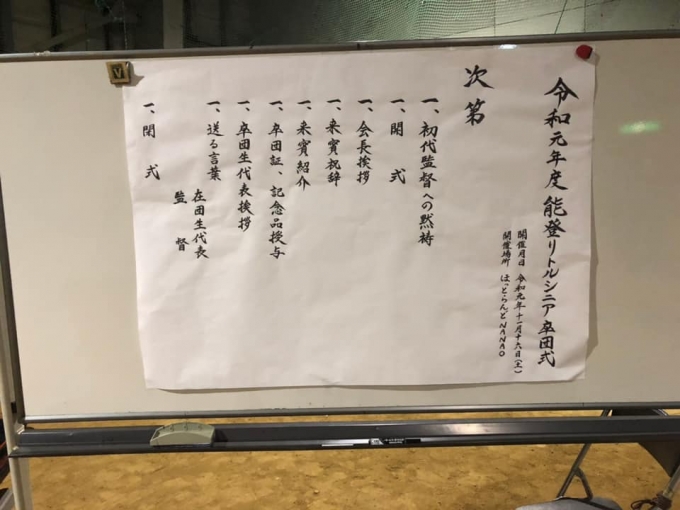 令和元年度 能登リトルシニア卒団式
開催月日 令和元年十一月十六日(土)
開催場所 ほっとらんどNANAO
次第
一、初代監督への黙祷
一、開 式
一、会長挨拶
一、来賓祝辞
一、来賓紹介
一、卒団証、記念品授与
一、卒団生代表挨拶
一、送る言葉
在団生代表
監 督
一、閉 式
V